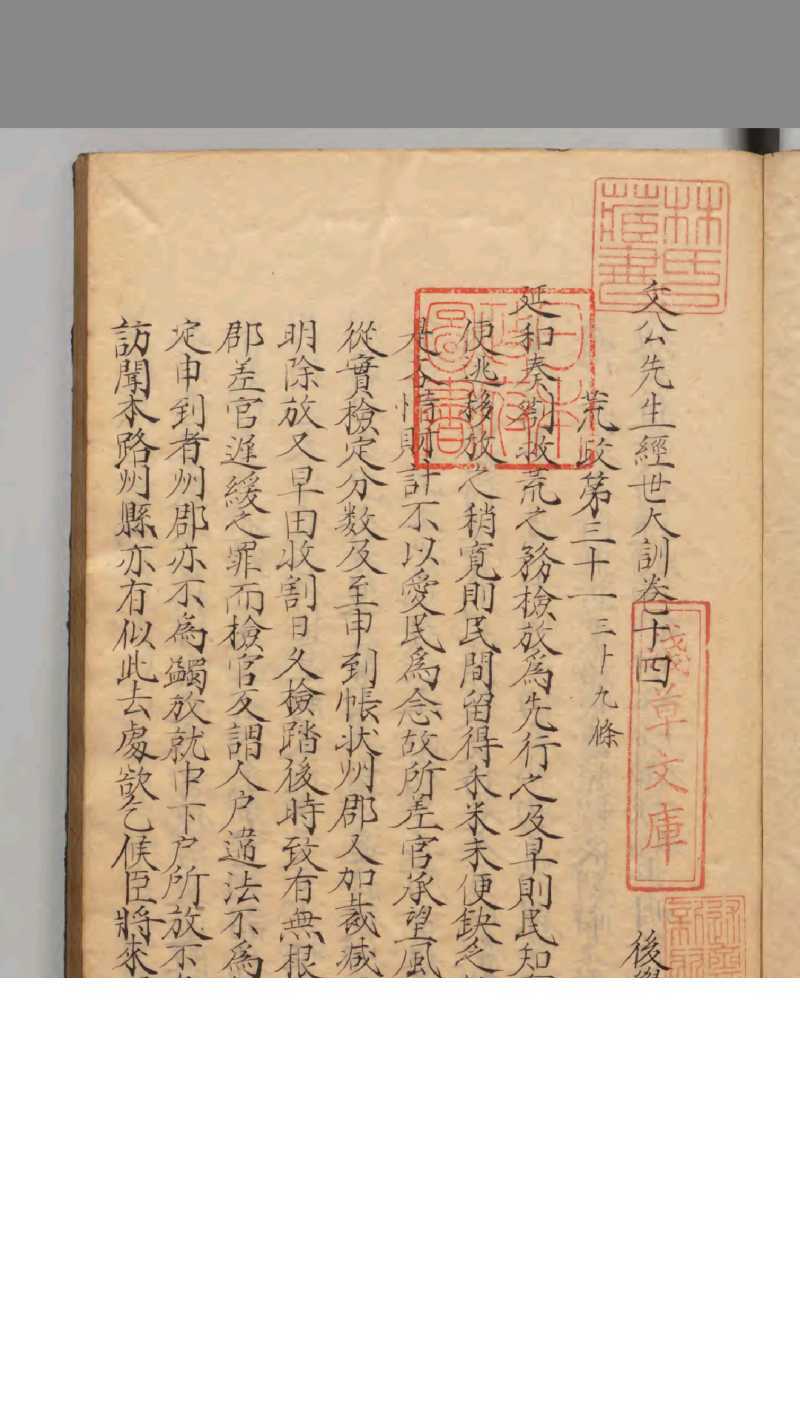 文公先生經世大訓卷十四
後
荒政第三十一 三十九條
延和奏劄救荒之務檢放為先行之及早則民知
便逃移放之稍寬則民間留得禾米未便缺乏
是吝惜財計不以愛民為念故所差官承望風
從實檢定分數及至申到帳狀州郡又加裁減
明除放又早田收割日久檢踏後時致有無根
郡差官遲緩之罪而檢官反謂人户違法不爲
定申到者州郡亦不為蠲放就中下户所放不
訪聞本路州縣亦有似此去處欲乞候臣將來
林氏藏書
淺草文庫